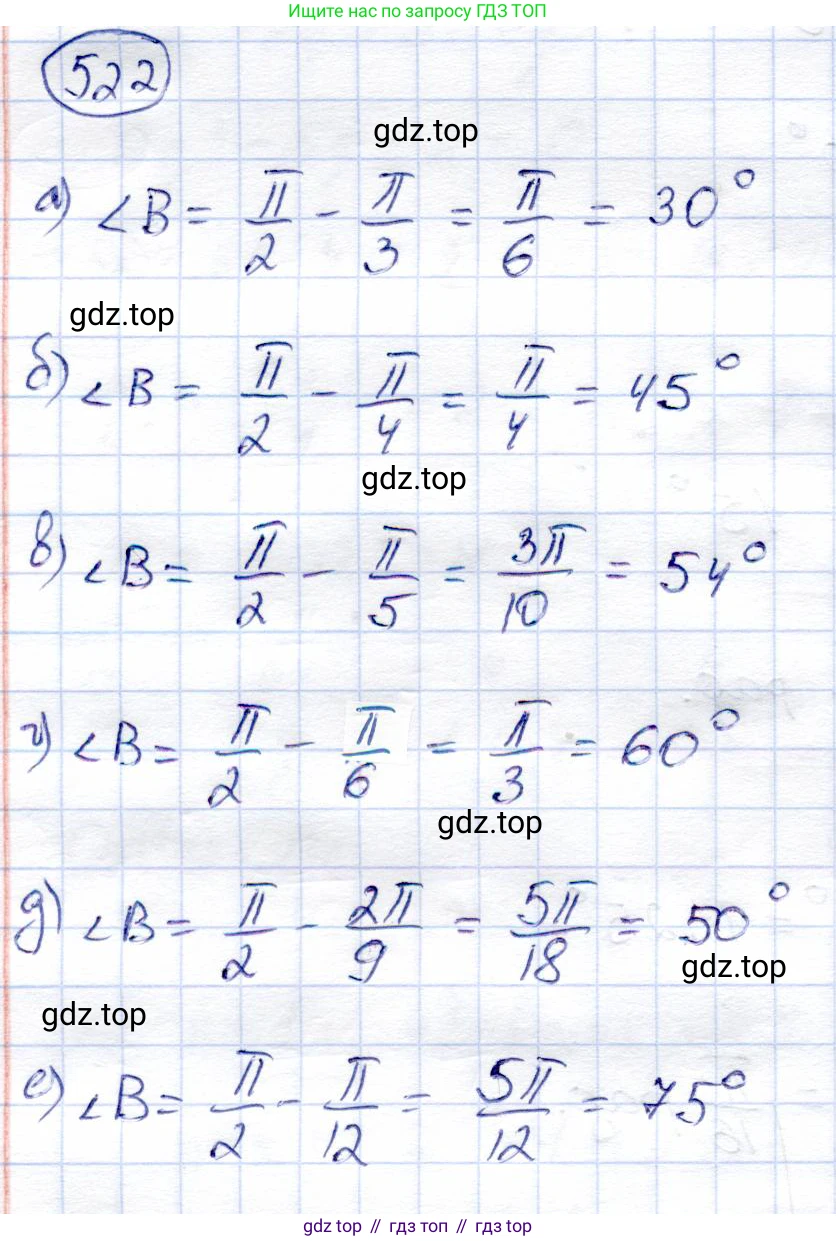 Ищите нас по запросу ГДЗ ТОП
522
gdz.top
а) ∠B = π/2 - π/3 = π/6 = 30°
gdz.top
б) ∠B = π/2 - π/4 = π/4 = 45°
gdz.top
в) ∠B = π/2 - π/5 = 3π/10 = 54°
г) ∠B = π/2 - π/6 = π/3 = 60°
gdz.top
д) ∠B = π/2 - 2π/9 = 5π/18 = 50°
gdz.top
gdz.top
е) ∠B = π/2 - π/12 = 5π/12 = 75°
gdz top // гдз топ // gdz top